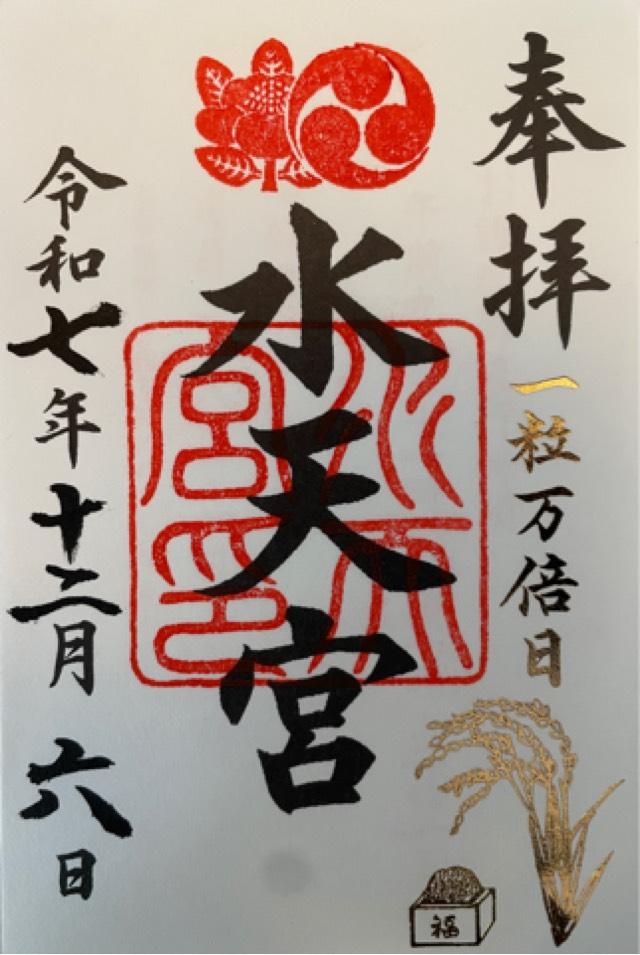 奉拝
一粒万倍日
福
水天宮
水天宮印
令和七年十二月六日